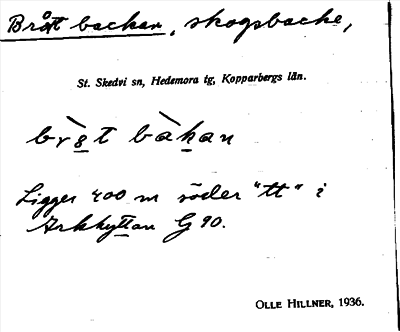 Bråtbackan, skogsbacke,
St. Skedvi sn, Hedemora tg, Kopparbergs län.
Ligger 400 m söder "tt" i
Arkhyttan G 90.
OLLE HILLNER, 1936.